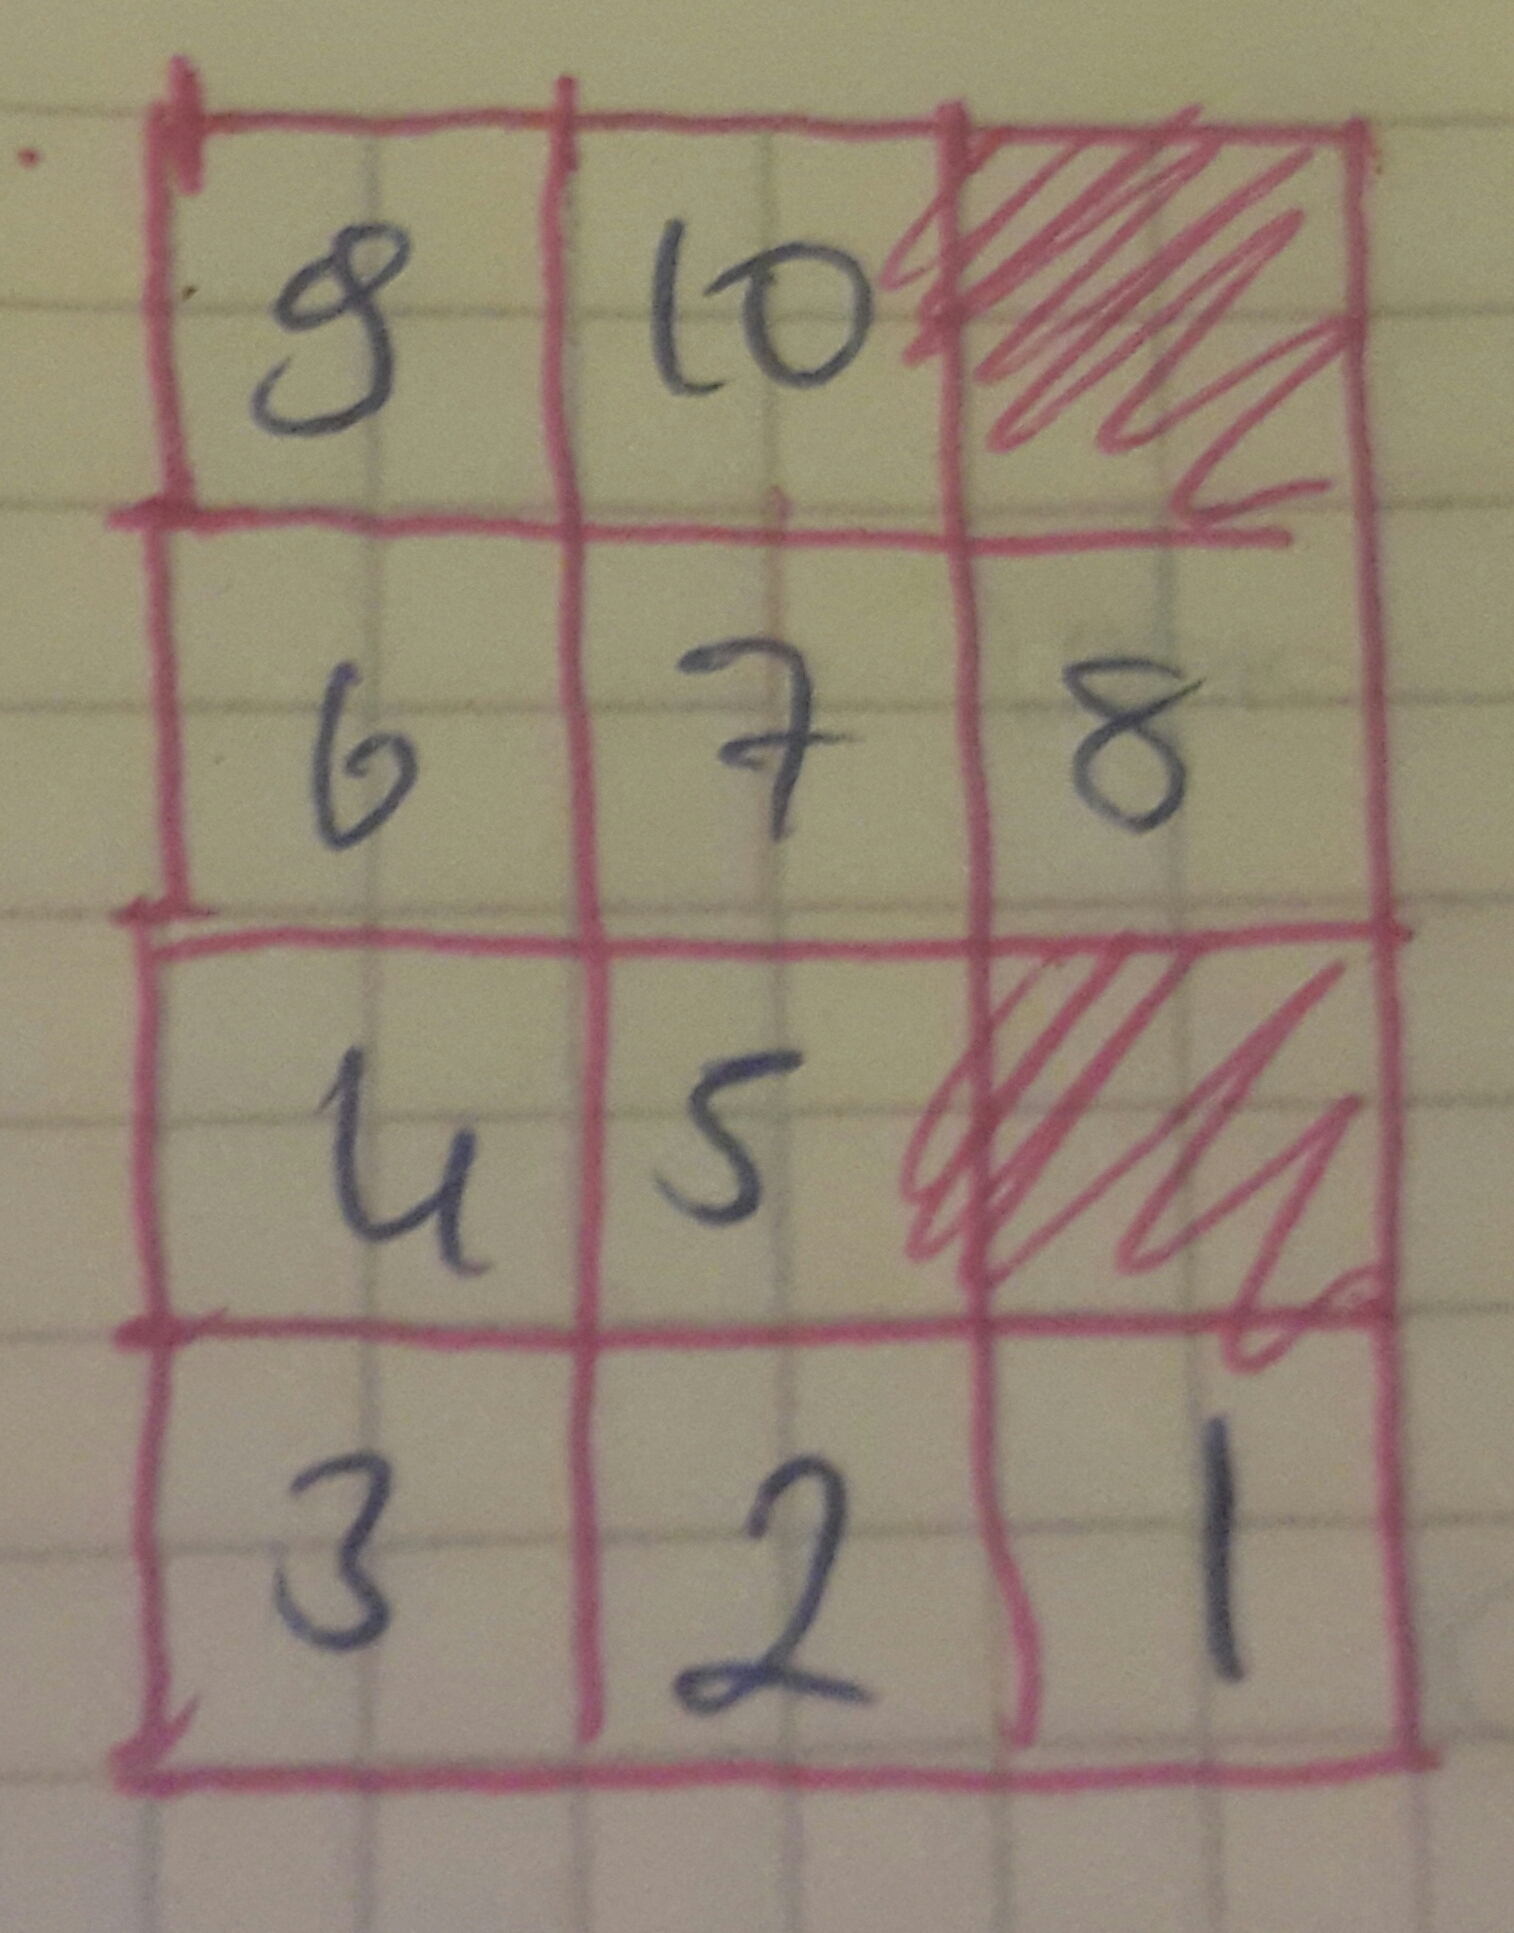 9 10
6 7 8
4 5
3 2 1